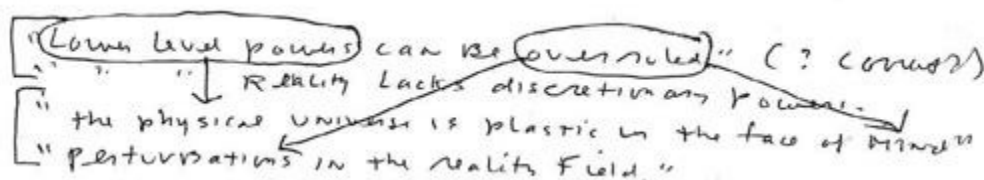 "Lower level powers can be overruled" (? correct)
" " " Reality lacks discretionary powers.
"the physical universe is plastic in the face of mind"
"perturbations in the reality field."